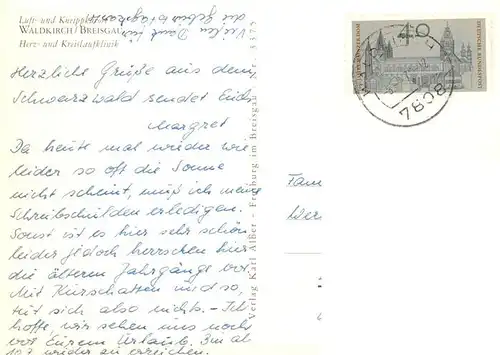 Luft- und Kneippkurort
WALDKIRCH/BREISGAU
Herz- und Kreislaufklinik
Vielen Dank für
die Geburtstagskarte
Herzliche Grüße aus dem
Schwarzwald sendet Euch
Margret
Da heute mal wieder wie
leider so oft die Sonne
nicht scheint, muß ich meine
Schreibschulden erledigen.
Sonst ist es hier sehr schön
leider jedoch herrschen hier
die älteren Jahrgänge vor.
Mit Kurschatten und so,
tut sich also nichts. - Ich
hoffe, wir sehen uns noch
vor Eurem Urlaub. Bin ab
10.7. wieder zu erreichen.
Verlag Karl Alber - Freiburg im Breisgau
Fam
Wer
40
DEUTSCHE BUNDESPOST
7808